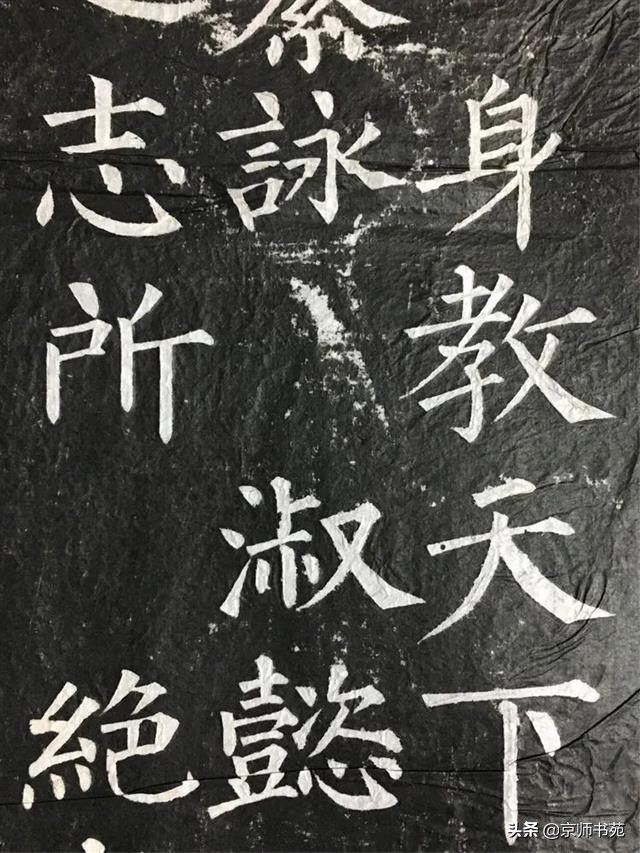 身教天下
詠淑懿
志所絕
头条@京师书苑